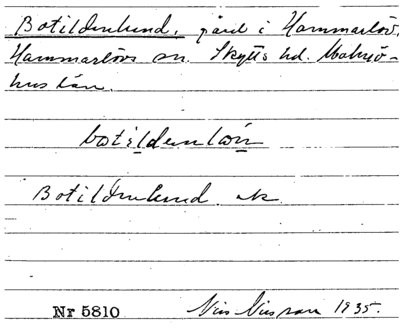 Botildenlund, gård i Hammarlöv,
Hammarlövs sn. Skytts hd. Malmö-
hus län.
Botildenlund. ek
Nr 5810 Nils Nilsson 1935.